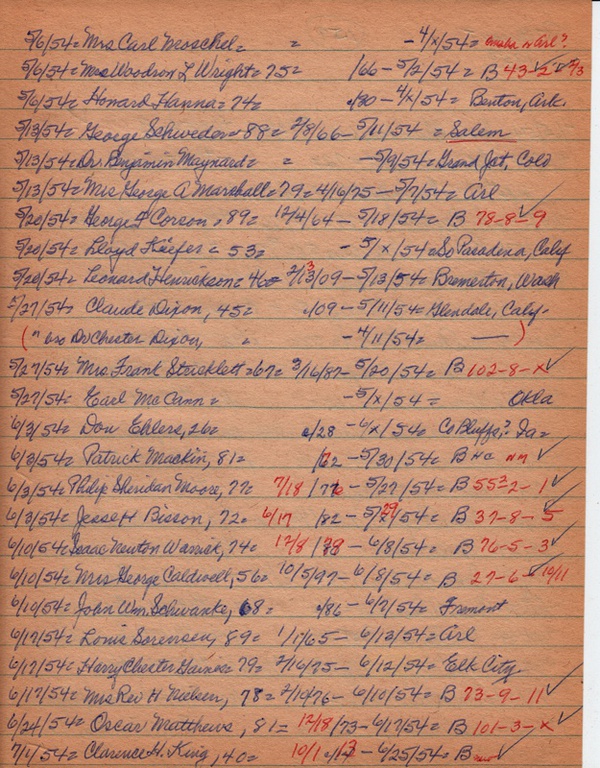 5/6/54= Mrs Carl Moschel= = -4/x/54= Omaha or Arl?
5/6/54= Mrs Woodrow L Wright= 75= /66- 5/2/54= B 43-2
5/6/54= Honard Hanna= 74= c/80- 4/x/54= Benton, Ark.
5/13/54= George Schweder= 88= 2/8/66- 5/11/54 = Salem
5/13/54= Dr. Benjamin Maynard= = -5/9/54= Grand Jct, Colo
5/13/54= Mrs George A Marshall= 79= 4/16/75- 5/7/54= Arl
5/20/54= George F Corson, 89= 12/4/64- 5/18/54= B 78-8-9
5/20/54= Lloyd Kiefer= 53= - 5/x/54= So Pasadena, Calif
5/20/54= Leonard Henrickson= 2/13/09- 5/13/54= Bremerton, Wash
5/27/54= Claude Dixon, 45= c/09- 5/11/54= Glendale, Calif.
(" bro Dr Chester Dixon, = -4/11/54= — )
5/27/54= Mrs. Frank Stucklett= 67= 3/16/87- 5/20/54= B 102-8-x
5/27/54= Earl McCann= -5/x/54= Okla
6/3/54= Don Ehlers, 26= c/28 - 6/x/54= Co Bluffs,? Ia=
6/3/54= Patrick Mackin, 81= /72 - 5/30/54= B NC NM
6/3/54= Philip Sheridan Moore, 77= 7/18/76 - 5/27/54= B 55-2-1
6/3/54= Jesse H Bisson, 72= 6/17/82 - 5/29/54= B 37-8-5
6/10/54= Isaac Newton Warrick, 74= 12/8/79 - 6/8/54= B 76-5-3
6/10/54= Mrs George Caldwell, 56= 10/5/97- 6/8/54= B 27-6-10/11
6/10/54= John Wm Schwanke, 68= c/86- 6/7/54= Fremont
6/17/54= Louie Sorensen, 89= 1/11/65- 6/13/54= Arl
6/17/54= Harry Chester Gaines= 79= 2/16/75- 6/12/54= Elk City
6/17/54= Mrs Rev H Nielsen, 78= 2/10/76- 6/10/54= B 73-9-11
6/24/54= Oscar Matthews, 81= 12/18/73- 6/17/54= B 101-3-x
7/1/54= Clarence H. King, 40= 10/1 c/13 - 6/25/54= B